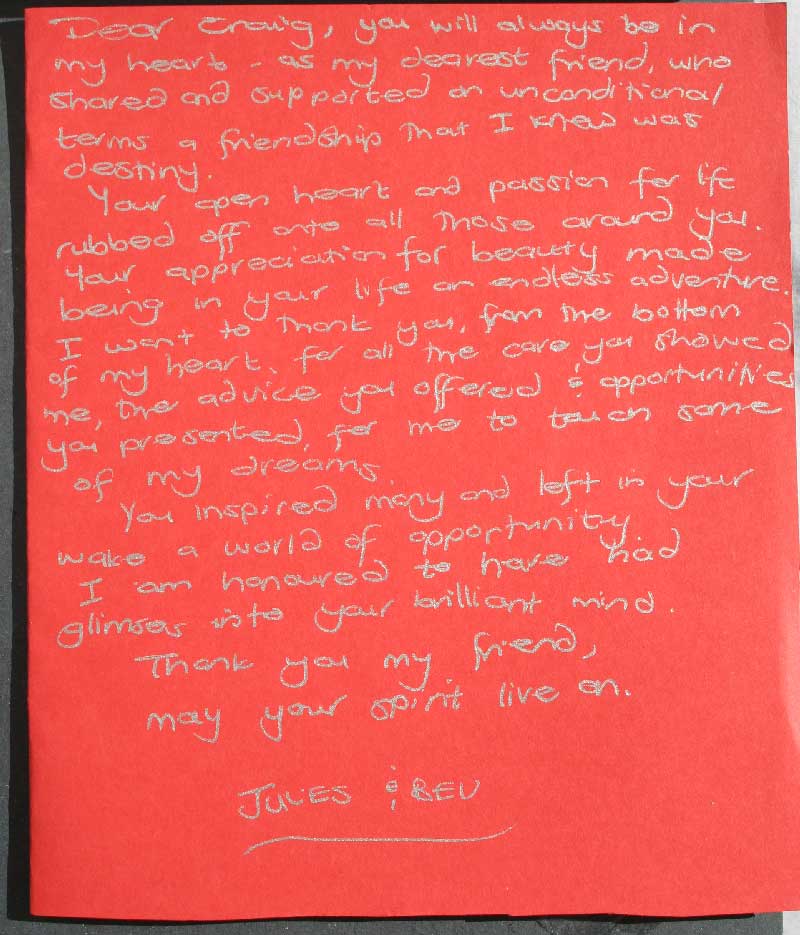 Dear Craig, you will always be in
my heart - as my dearest friend, who
shared and supported on unconditional
terms a friendship that I knew was
destiny.
Your open heart and passion for life
rubbed off onto all those around you.
Your appreciation for beauty made
being in your life an endless adventure.
I want to thank you, from the bottom
of my heart, for all the care you showed
me, the advice you offered & opportunities
you presented, for me to touch some
of my dreams
You inspired many and left in your
wake a world of opportunity
I am honoured to have had
glimses into your brilliant mind.
Thank you my friend,
may your spirit live on.
JULES & BEV